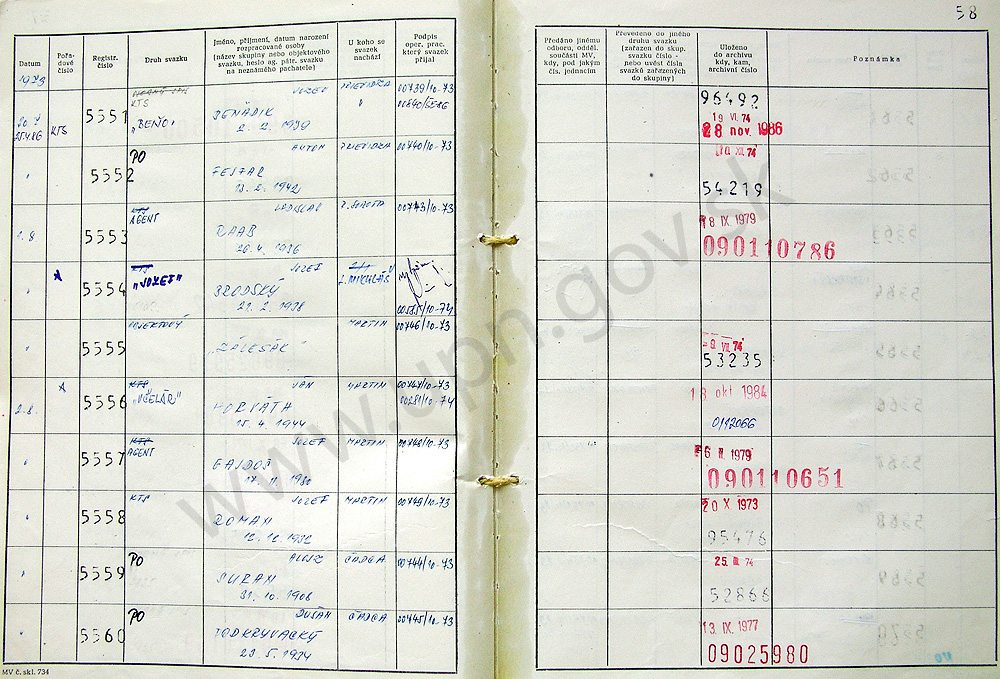 58
Datum
Pořa-
dové
číslo
Registr.
číslo
Druh svazku
Jméno, příjmení, datum narození
rozpracované osoby
(název skupiny nebo objektového
svazku, heslo ag. pátr. svazku
na neznámého pachatele)
U koho se
svazek
nachází
Podpis
oper. prac.
který svazek
přijal
Předáno jinému
odboru, odděl.
součásti MV,
kdy, pod jakým
čís. jednacím
Převedeno do jiného
druhu svazku
(zařazen do skup.
svazku číslo -
nebo uvést čísla
svazků zařízených
do skupiny)
Uloženo
do archivu
kdy, kam,
archivní číslo
Poznámka
1973
5551
KTS
"BEŇO"
JOZEF
BENÁDIK
2. 2. 1939
PRIEVIDZA
00739/10-73
KTS
96492
19 VI. 74
28 nov. 1986
5552
PO
ANTON
1942
PRIEVIDZA
00740/10-73
XII. 74
54219
2.8
5553
KTS
AGENT
LADISLAV
RAAB
26. 4. 1936
00743/10-73
18 IX 1979
090110786
5554
KTS
"JOZEF"
JOZEF
BRODSKÝ
21. 2. 1938
L. MIKULÁŠ
5555
OBJEKTOVÝ
"ZÁLESÁK"
MARTIN
00746/10-73
VII. 74
53235
2.8.
5556
KTS
"VČELÁR"
JÁN
HORVÁTH
15. 4. 1944
MARTIN
00747/10-73
00281/10-74
18 okt 1984
5557
KTS
AGENT
JOZEF
GAJDOŠ
MARTIN
00748/10-73
1979
090110651
5558
KTS
JOZEF
ROMAN
12. 12. 1932
MARTIN
00749/10-73
20 X 1973
95476
5559
PO
ALOJZ
31. 10. 1908
ČADCA
00744/10-73
25. III. 74
52866
5560
PO
DUŠAN
PODKRYVACKÝ
29. 5. 1934
ČADCA
00745/10-73
13. IX. 1977
09025980
MV č. skl. 734
www.upn.gov.sk